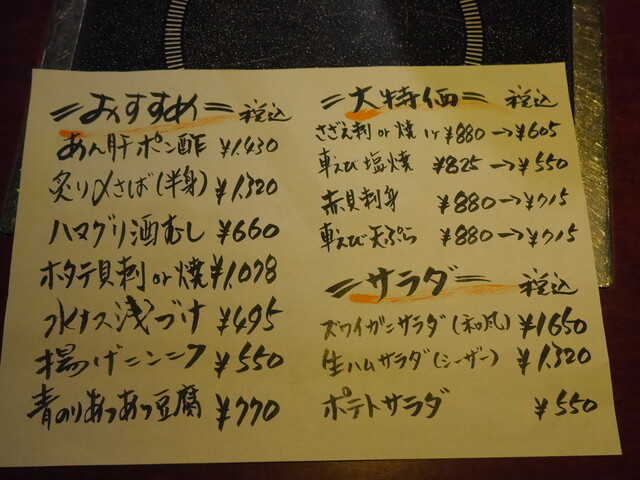 =おすすめ= 税込
あん肝ポン酢 ¥1.430
炙り〆さば(半身) ¥1.320
ハマグリ酒むし ¥660
ホタテ貝刺 or 焼 ¥1.078
水ナス浅づけ ¥495
揚げニンニク ¥550
青のりあつあつ豆腐 ¥770
=大特価= 税込
さざえ刺 or 焼 1ヶ ¥880→¥605
車えび塩焼 ¥825→¥550
赤貝刺身 ¥880→¥715
車えび天ぷら ¥880→¥715
=サラダ= 税込
ズワイガニサラダ(和風) ¥1650
生ハムサラダ(シーザー) ¥1.320
ポテトサラダ ¥550